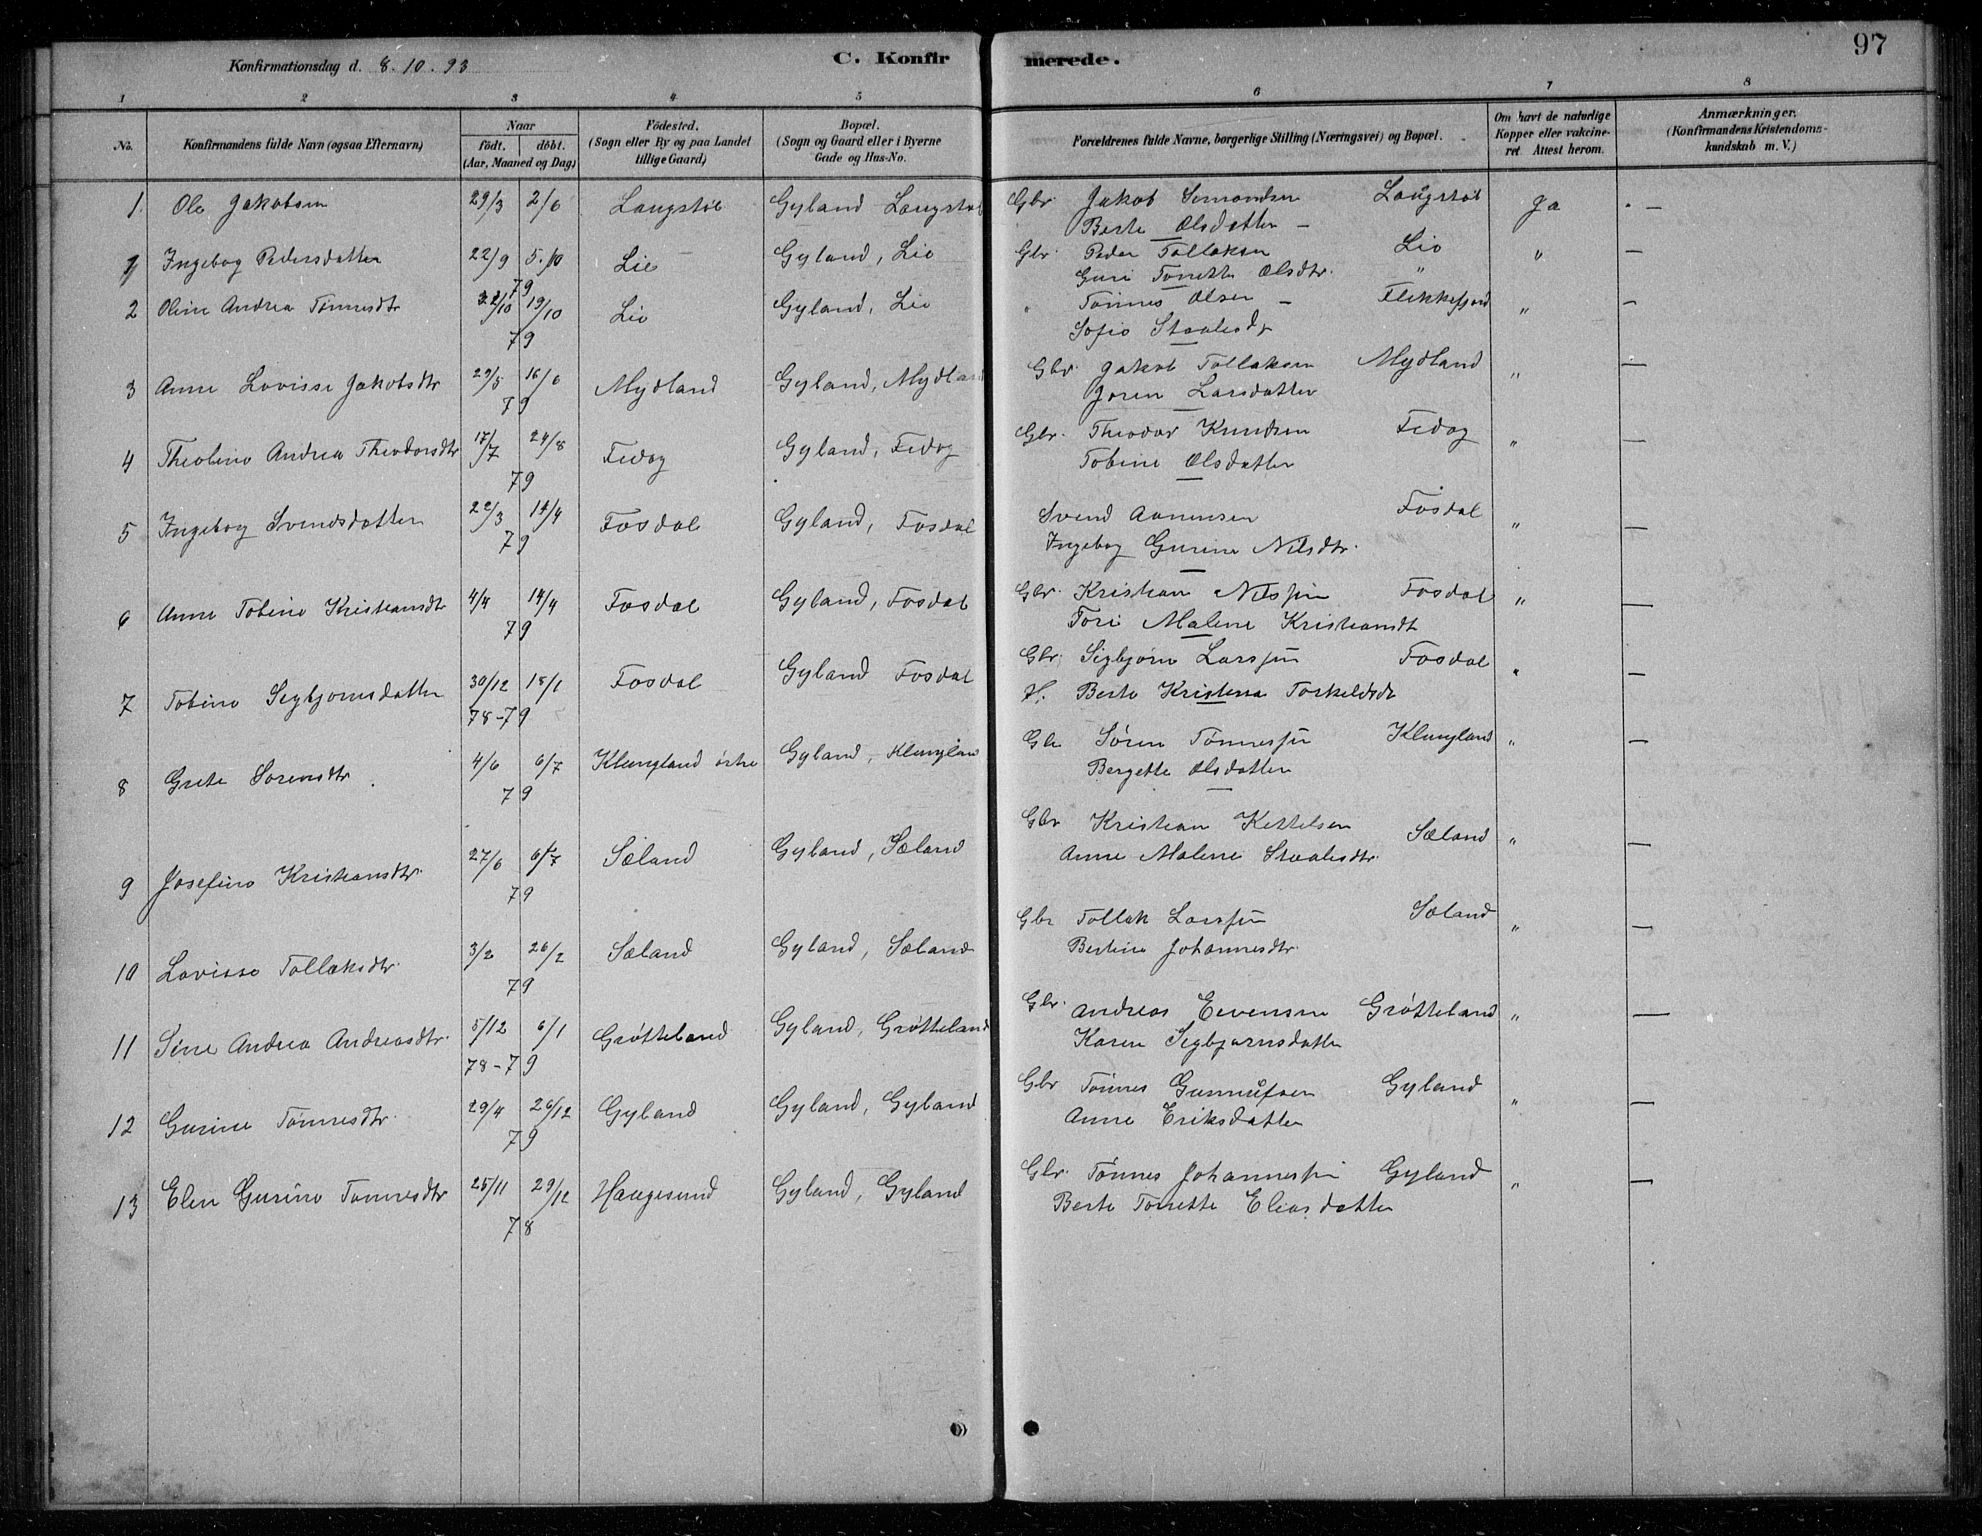 97
Konfirmationsdag d. 8.10.93
C. Konfirmerede.
1 2 3 4 5 6 7 8
No. Konfirmandens fulde Navn (ogsaa Efternavn) Naar født. døbt. (Aar, Maaned og Dag) Fødested. (Sogn eller By og paa Landet tillige Gaard) Bopæl. (Sogn og Gaard eller i Byerne Gade og Hus-No. Forældrenes fulde Navne, borgerlige Stilling (Næringsvei) og Bopæl. Om havt de naturlige Kopper eller vakcineret. Attest herom. Anmærkninger. (Konfirmandens Kristendomskundskab m. V.)
1. Ole Jakobsen 29/3 2/6 Laugstøl Gyland Laugstøl Gbr. Jakob Simondsen Laugstøl Ja —
Berte Olsdatter —
1 Ingebog Pedersdatter 22/9 5.10 Lie Gyland, Lie Gbr. Peder Tollaksen Lie " —
79 Guri Tonette Olsdtr. "
2 Oline Andrea Tønnesdtr 2/10 19/10 Lie Gyland, Lie " Tønnes Olsen — Flekkefjord " —
79 Sofie Staalesdr
3 Anne Lovisse Jakobsdtr 29/5 16/6 Mydland Gyland, Mydland Gbr. Jakob Tollaksen Mydland " —
79 Joren Larsdatter
4 Theoline Andrea Theodorsdtr 17/7 24/8 Fedog Gyland, Fedog Gbr. Theodor Knudsen Fedog " —
79 Tobine Olsdatter
5 Ingebog Svendsdatter 22/3 14/4 Fosdal Gyland, Fosdal Svend Aanensen Fosdal " —
79 Ingebog Gurine Nilsdtr.
6 Anne Tobine Kristiansdtr 4/4 14/4 Fosdal Gyland, Fosdal Gbr. Kristian Nilssen Fosdal " —
79 Tori Malene Kristiansdt
7 Tobine Sigbjørnsdatter 30/12 18/1 Fosdal Gyland Fosdal Gbr. Sigbjørn Larssen Fosdal " —
78-79 H. Berte Kristena Torkeldsdr
8 Grete Sorensdtr 4/6 6/7 Klungland østre Gyland, Klungland Gbr Søren Tønnessen Klungland " —
79 Bergette Olsdatter
9 Josefine Kristiansdtr. 27/6 6/7 Sæland Gyland, Sæland Gbr Kristian Kettelsen Sæland " —
79 Anne Malene Staalesdtr.
10 Lovisse Tollaksdtr. 3/2 26/2 Sæland Gyland, Sæland Gbr Tollak Larssen Sæland " —
79 Bertine Johannesdtr.
11 Sine Andrea Andreasdtr. 5/12 6/1 Grøtteland Gyland, Grøtteland Gbr. Andreas Eivensen Grøtteland " —
78-79 Karen Sigbjørnsdatter
12 Gurine Tønnesdtr. 29/4 26/12 Gyland Gyland, Gyland Gbr Tønnes Gunnufsen Gyland " —
79 Anne Eriksdatter
13 Elen Gurine Tønnesdtr 25/11 29/12 Haugesund Gyland, Gyland Gbr. Tønnes Johannessen Gyland " —
78 Berte Tonette Eliasdatter